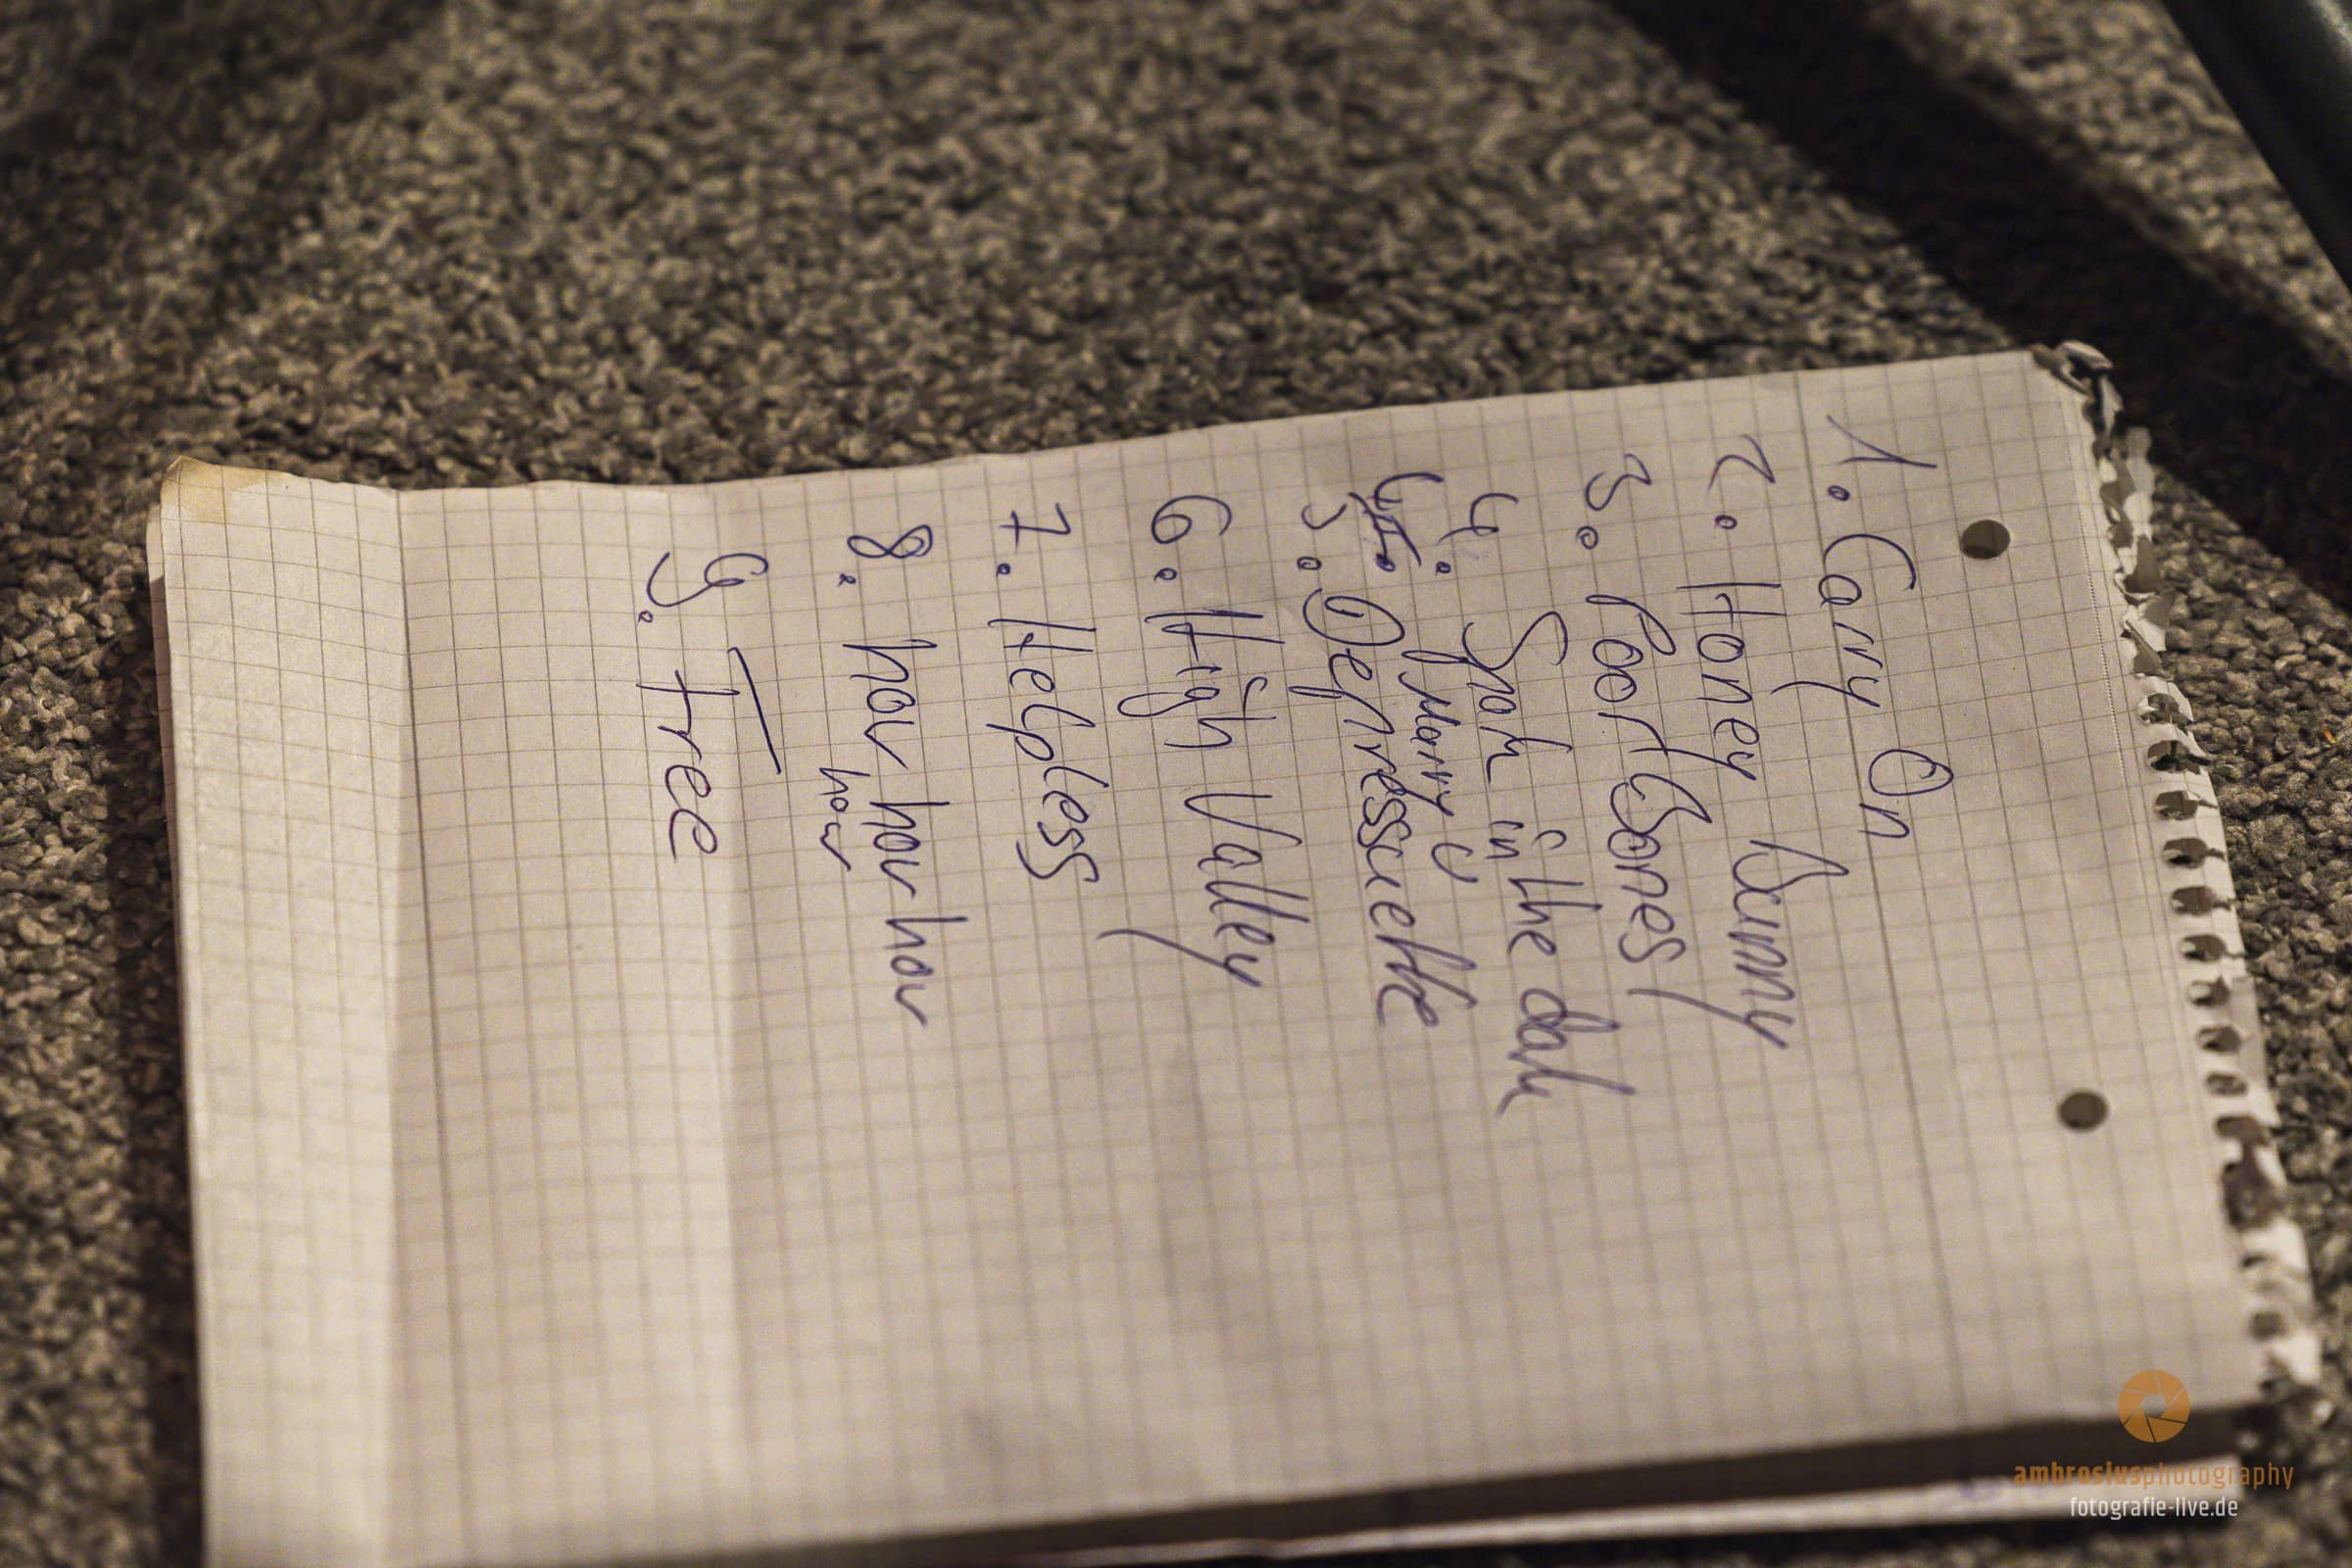 1. Carry On
2. Honey Bunny
3. Poor Bones
4. in the dark
Marry U
5. Depressuette
6. High Valley
7. Helpless
8. how how how
how
9. Free
ambrosiusphotography
fotografie-live.de